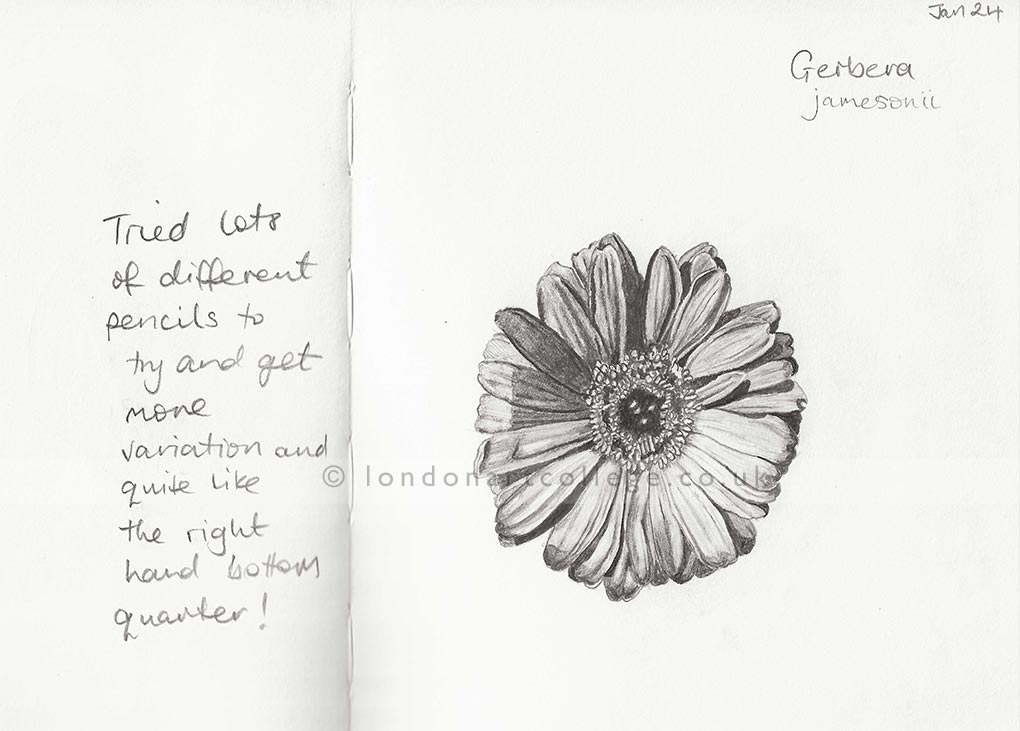 Jan 24
Gerbera
jamesonii
Tried lots
of different
pencils to
try and get
more
variation and
quite like
the right
hand bottom
quarter!
© londonartcollege.co.uk